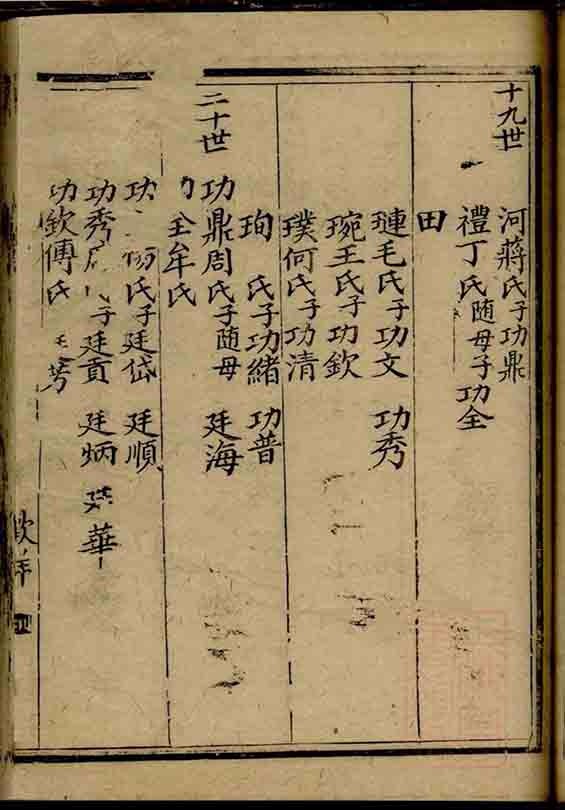 十九世
河蔣氏子功鼎
禮丁氏随母子功全
田
璉毛氏子功文 功秀
琬王氏子功欽
璞何氏子功清
珣 氏子功緒 功普
二十世
功鼎周氏子随母 廷海
全牟氏
功 氏子廷岱 廷順
功秀 子廷貢 廷炳 華
功欽傅氏 芳